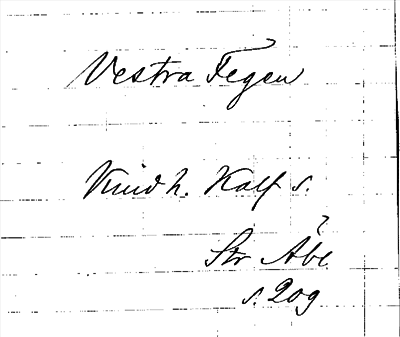 Vestra Tegen
Knid h. Kalf s.
Str Åbe
s. 209